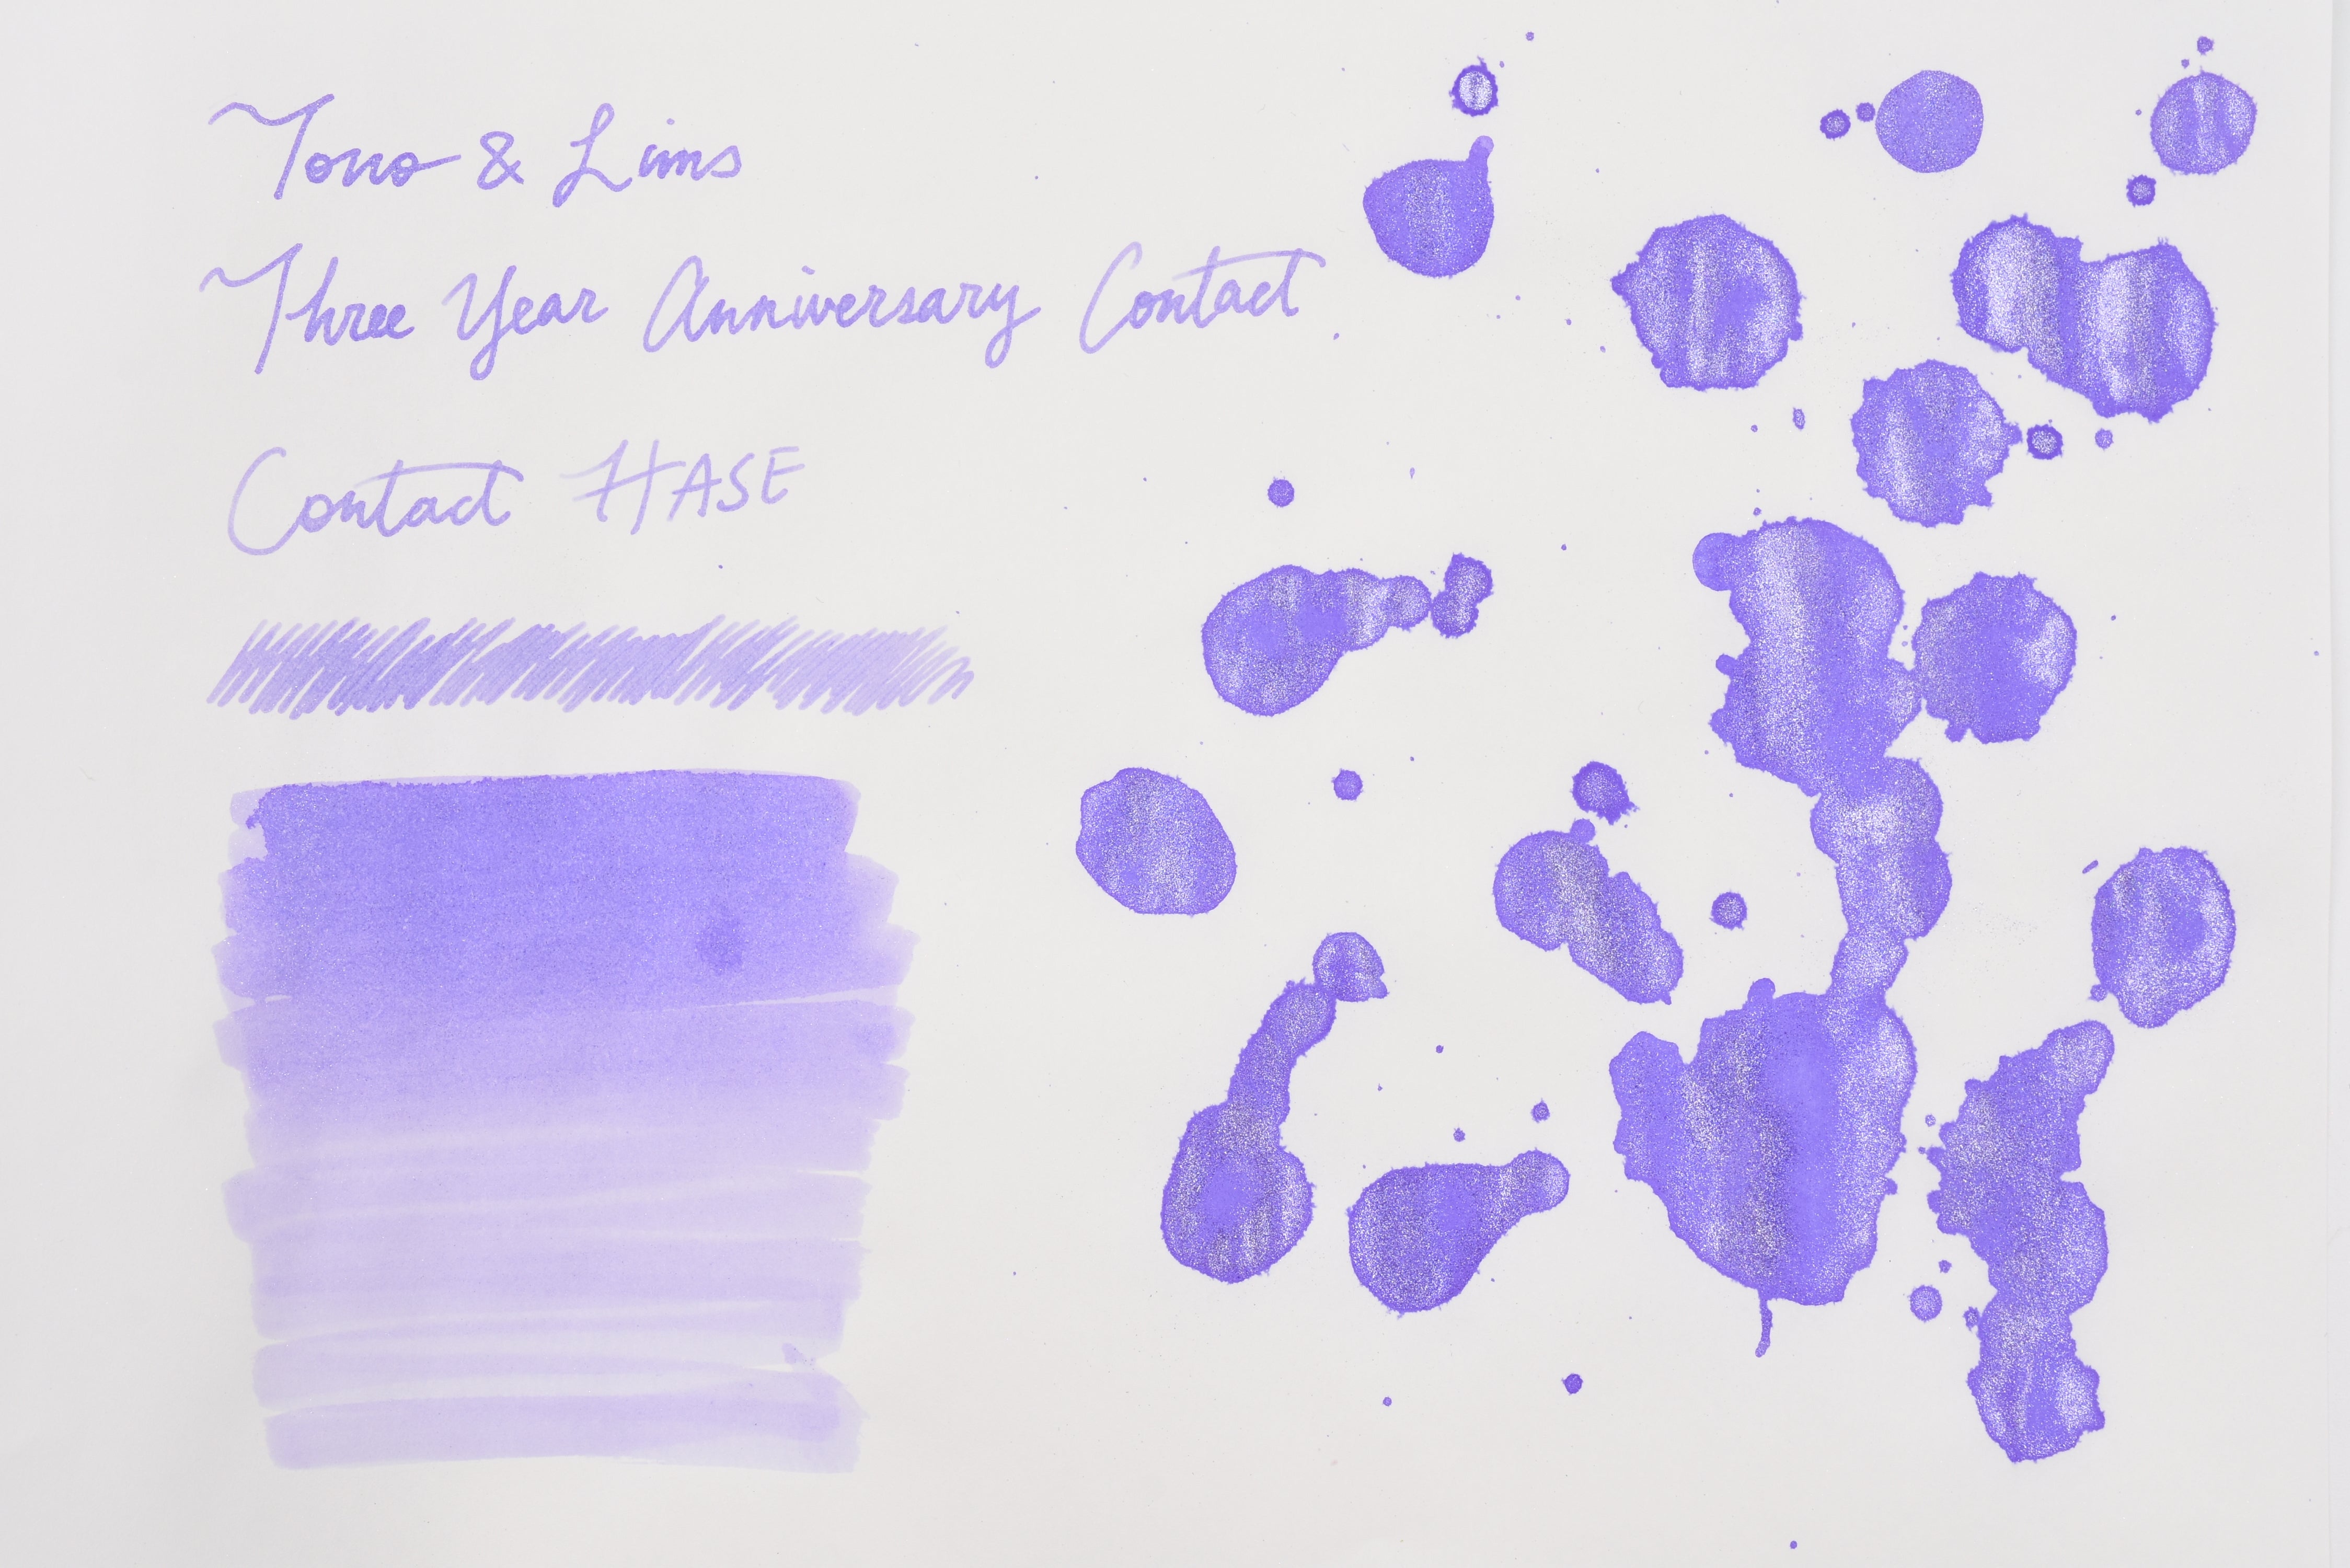 Tono & Lims
Three Year Anniversary Contact
Contact HASE